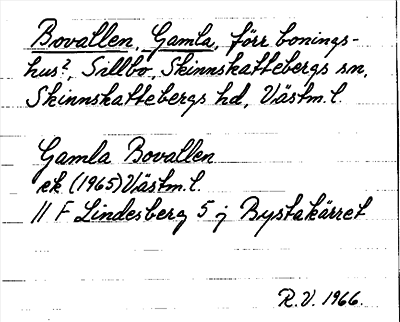 Bovallen, Gamla, förr bonings-
hus?, Sillbo, Skinnskattebergs sn,
Skinnskattebergs hd, Västm. l.
Gamla Bovallen
ek (1965) Västm. l.
11 F Lindesberg 5 j Bystakärret
R.V. 1966.